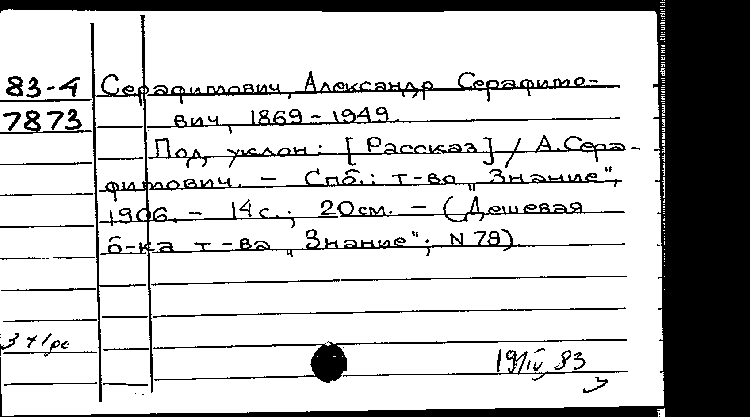 83-4 Серафимович, Александр Серафимо-
7873 вич, 1869-1949.
Под уклон: [Рассказ] / А. Сера-
фимович. - Спб.: т-во "Знание",
1906. - 14 с.; 20 см. - (Дешевая
б-ка т-ва "Знание"; N 78)
19/IV 83